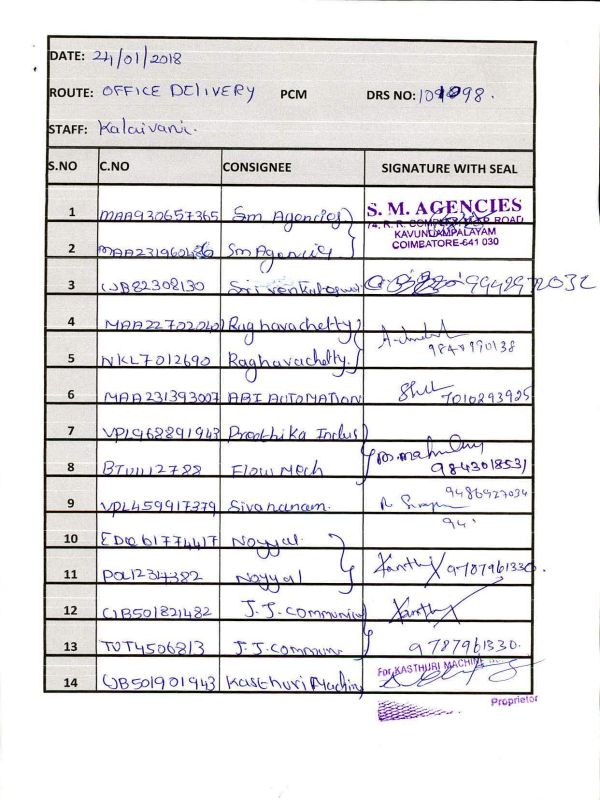 DATE: 24/01/2018
ROUTE: OFFICE DELIVERY PCM DRS NO: 109098.
STAFF: Kalaivani.
S.NO C.NO CONSIGNEE SIGNATURE WITH SEAL
1 MAA930657365 Sm Agencies S. M. AGENCIES
74, R. R. ROAD
KAVUNDAMPALAYAM
COIMBATORE-641 030
2 Sm Agencies
3 UB82308130 Sri 9942972032
4 Raghavachetty
5 NKL7012690 Raghavachetty. 9841990138
6 MAA231393007 ABI AUTOMATION 7010293905
7 VPL968891943 Praathika Indus
8 Flow Mech 9843018531
9 VPL459917379 Sivananam. 9486927034
94
10 Noyyal
11 Noyyal Kanthi 9787961330.
12 UB501821482 J.J. communica Kanthi
13 TUT4506813 J.J. commun 9787961330.
14 UB501901943 Kasthuri Machine For KASTHURI MACHINE
Proprietor